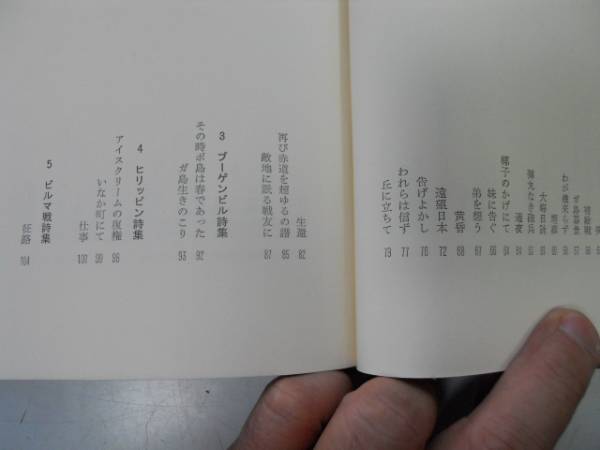 大福日誌
弾丸なき砲兵
通夜 84
椰子のかげにて 64
妹に告ぐ 66
弟を想う 67
黄昏 68
遠望日本 72
告げよかし 76
われらは信ず 77
丘に立ちて 79
生還 82
再び赤道を越ゆるの譜 85
敵地に眠る戦友に 87
3 ブーゲンビル詩集
その時ボ島は春であった 92
ガ島生きのこり 93
4 ヒリッピン詩集
アイスクリームの復権 96
いなか町にて 99
仕事 100
5 ビルマ戦詩集
征路 104